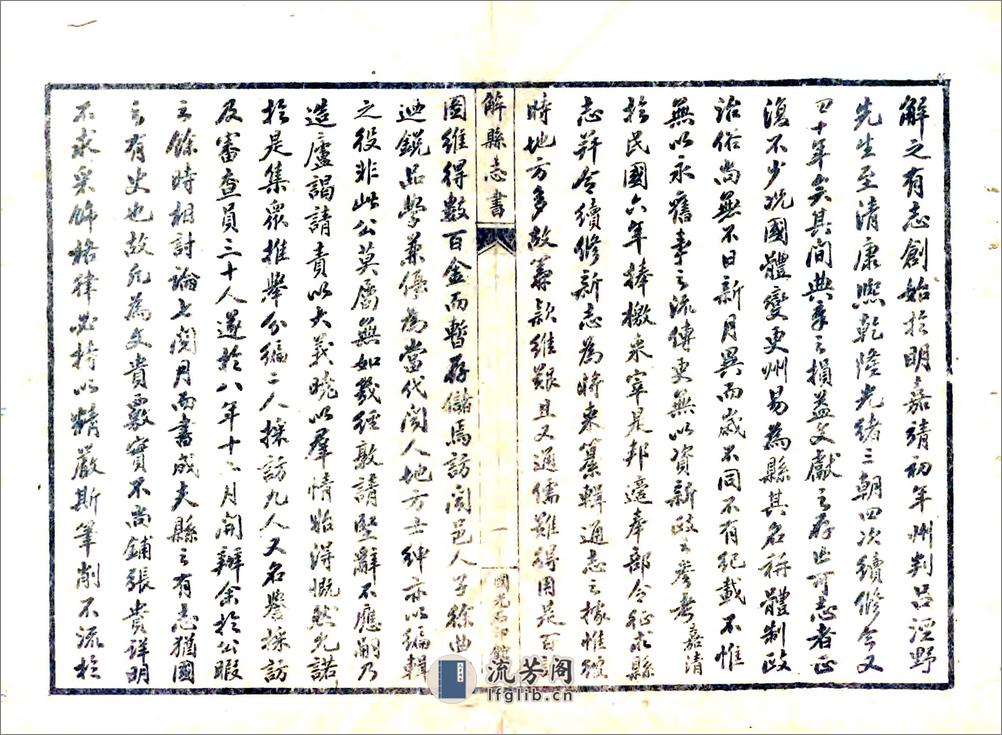 解之有志創始於明嘉靖初年州判呂涇野
先生至清康熙乾隆光緒三朝四次續修今又
四十年矣其間典章之損益文獻之存亡可志者正
復不少况國體變更州易為縣其名稱體制政
治俗尚無不日新月異而歲不同不有紀載不惟
無以永舊事之流傳更無以資新政之參考嘉清
於民國六年捧檄來宰是邦適奉部令徵求縣
志并令續修新志為將來纂輯通志之據惟彼
時地方多故籌款維艱且又通儒難得用是百
解縣志書
一
國光石印館
圖維得數百金而暫存儲焉訪聞邑人子徐曲
廼銳品學兼優為當代聞人地方士紳亦以編輯
之役非此公莫屬無如幾經敦請堅辭不應嗣乃
造廬謁請責以大義曉以羣情始得慨然允諾
於是集眾推舉分編二人採訪九人又名譽採訪
及審查員三十人遂於八年十二月開辦余於公暇
之餘時相討論七閱月而書成夫縣之有志猶國
之有史也故凡為文貴覈實不尚鋪張貴詳明
不求采飾格律必持以精嚴斯筆削不流於
流芳阁
lfglib.cn